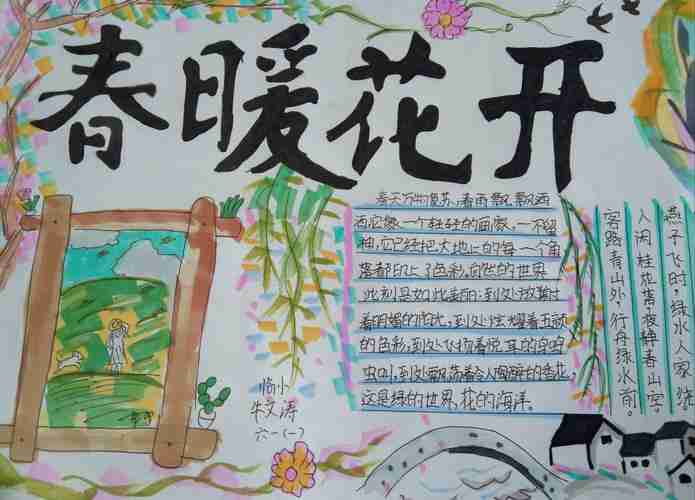 春暖花开
春天万物复苏,春雨飘飘洒
洒它像一个轻轻的画家,一不留
神,它已经把大地上的每一个角
落都印上了色彩,自然的世界
此刻是如此美丽:到处放射
着明媚的阳光,到处炫耀着五颜
的色彩,到处飞扬着悦耳的鸟鸣
虫叫,到处飘荡着令人陶醉的香花
这是绿的世界,花的海洋。
燕子飞时,绿水人家绕
人闲桂花落夜静春山空
客路青山外,行舟绿水前。
临小
文涛
六一(一)